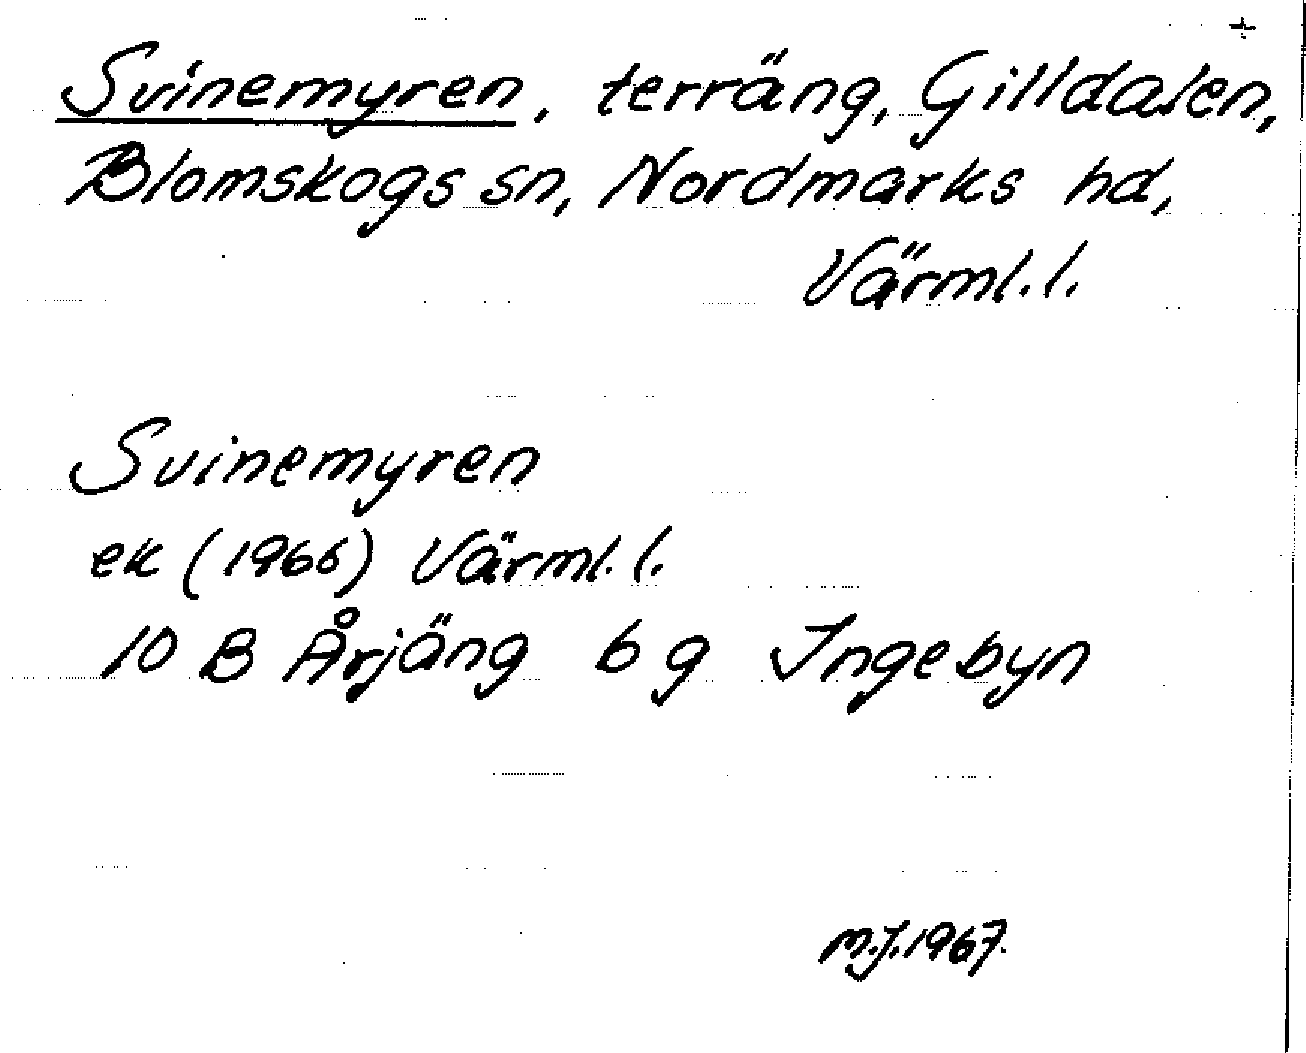 +
Svinemyren, terräng, Gilldalen,
Blomskogs sn, Nordmarks hd,
Värml. l.
Svinemyren
ek (1966) Värml. l.
10 B Årjäng 6 g Ingebyn
M.J. 1967.